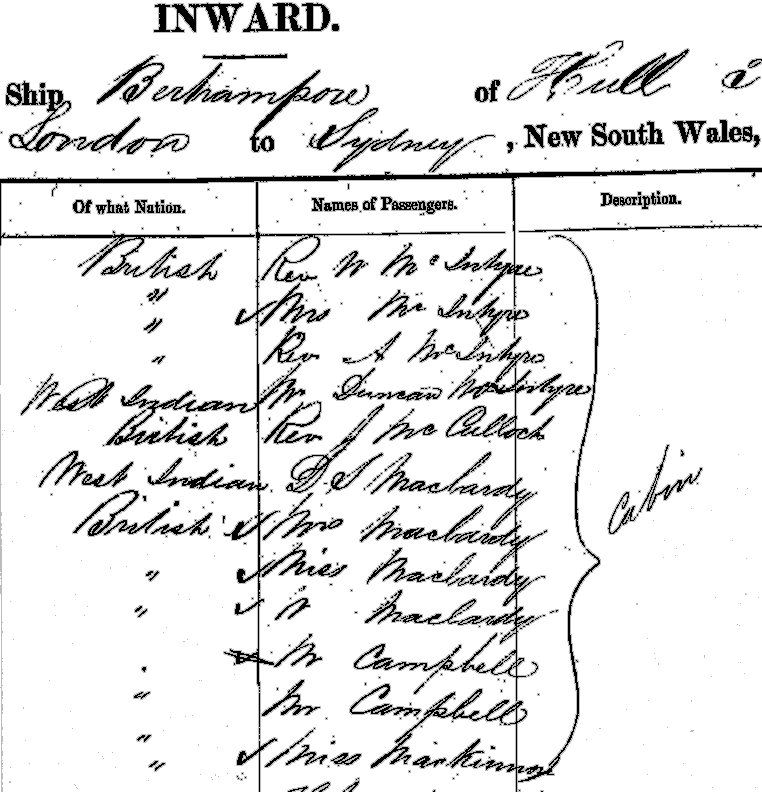 INWARD.
Ship Berhampore of Hull
London to Sydney, New South Wales,
Of what Nation. Names of Passengers. Description.
British Rev W McIntyre
" ✓ Mrs McIntyre
" Rev A McIntyre
West Indian Mr Duncan McIntyre
British Rev J McCulloch
West Indian D S MacLardy
British ✓ Mrs MacLardy
" ✓ Miss MacLardy
" ✓ W MacLardy
Cabin
" Mr Campbell
" Mr Campbell
" ✓ Miss Mackinnon